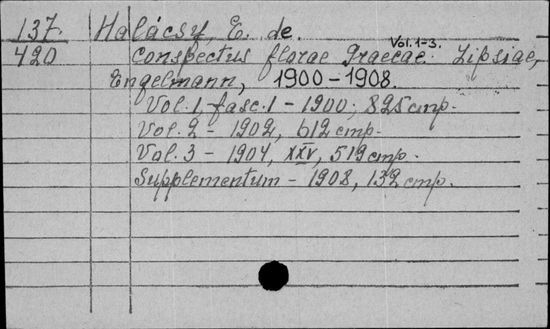 137 Halácsy, E. de.
420 Conspectus florae Graecae. Vol. 1-3. Lipsiae,
Engelmann, 1900-1908.
Vol. 1, fasc. 1 - 1900; 825 стр.
Vol. 2 - 1902, 612 стр.
Vol. 3 - 1904, XXV, 519 стр.
Supplementum - 1908, 132 стр.